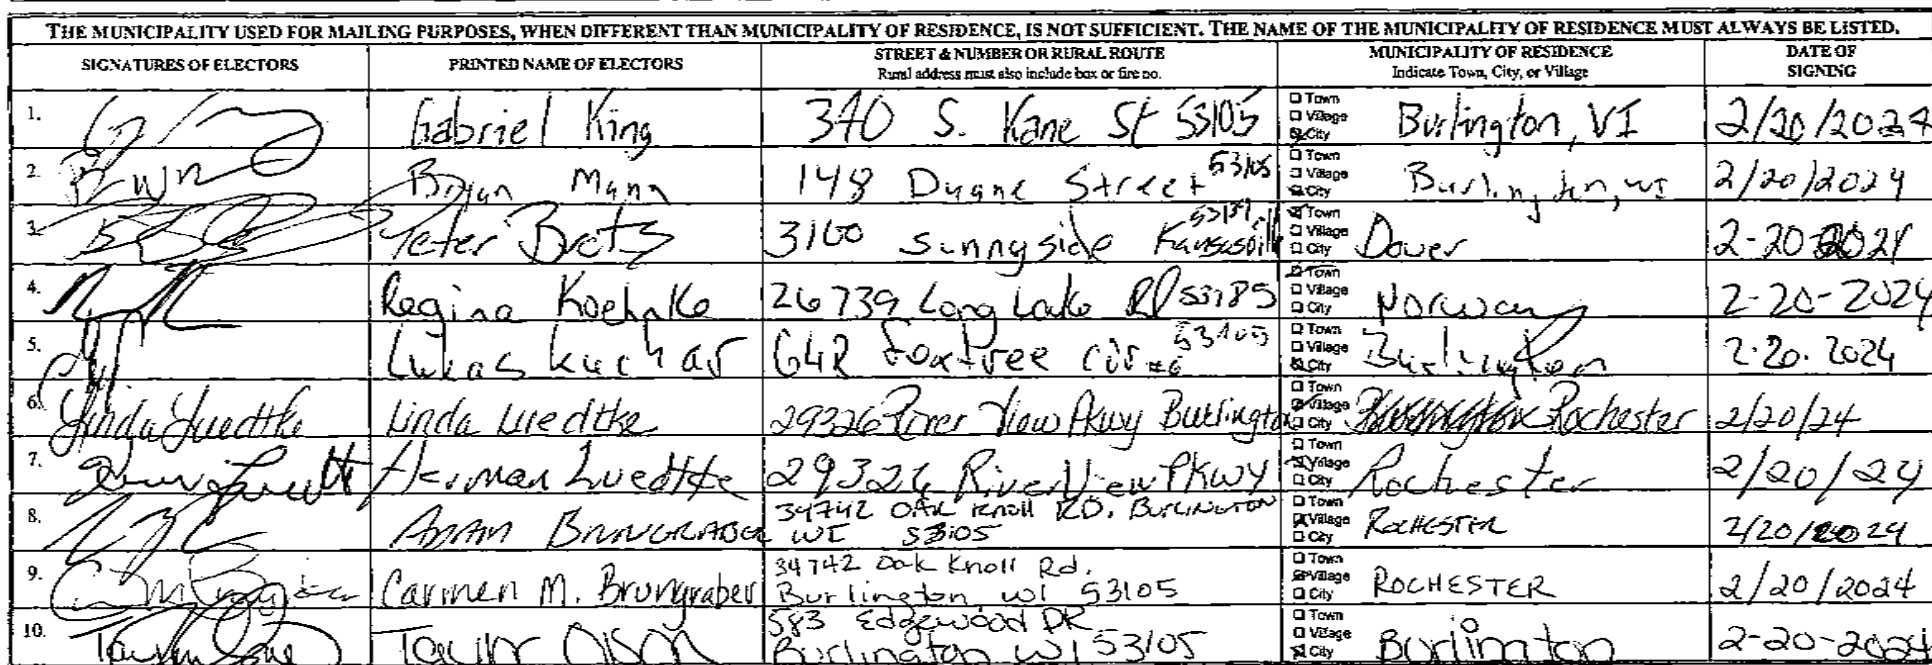 THE MUNICIPALITY USED FOR MAILING PURPOSES, WHEN DIFFERENT THAN MUNICIPALITY OF RESIDENCE, IS NOT SUFFICIENT. THE NAME OF THE MUNICIPALITY OF RESIDENCE MUST ALWAYS BE LISTED.
SIGNATURES OF ELECTORS PRINTED NAME OF ELECTORS STREET & NUMBER OR RURAL ROUTE MUNICIPALITY OF RESIDENCE DATE OF
Rural address must also include box or fire no. Indicate Town, City, or Village SIGNING
1. Gabriel King 340 S. Kane St 53105 Town Village City Burlington, VI 2/20/2024
2. Bryan Mann 148 Duane Street 53105 Town Village City Burlington, WI 2/20/2024
3. Peter Bretz 3160 Sunnyside Kansasville Town Village City Dover 2-20-2024
4. Regina Koehnke 26739 Long Lake Rd Town Village City Norway 2-20-2024
5. Lukas Kuchar Foxtree cir 53105 Town Village City Burlington 2.20.2024
6. Linda Luedtke Linda Luedtke 29326 River View Pkwy Burlington Town Village City Rochester 2/20/24
7. Herman Luedtke 29326 RiverView PKWY Town Village City Rochester 2/20/24
8. 34742 OAK Knoll RD. BURLINGTON Town Village City ROCHESTER 2/20/2024
WI 53105
9. Carmen M. Brungraber 34742 Oak Knoll Rd. Town Village City ROCHESTER 2/20/2024
Burlington WI 53105
10. Taylor Olson 583 Edgewood DR Town Village City Burlington 2-20-2024
Burlington WI 53105